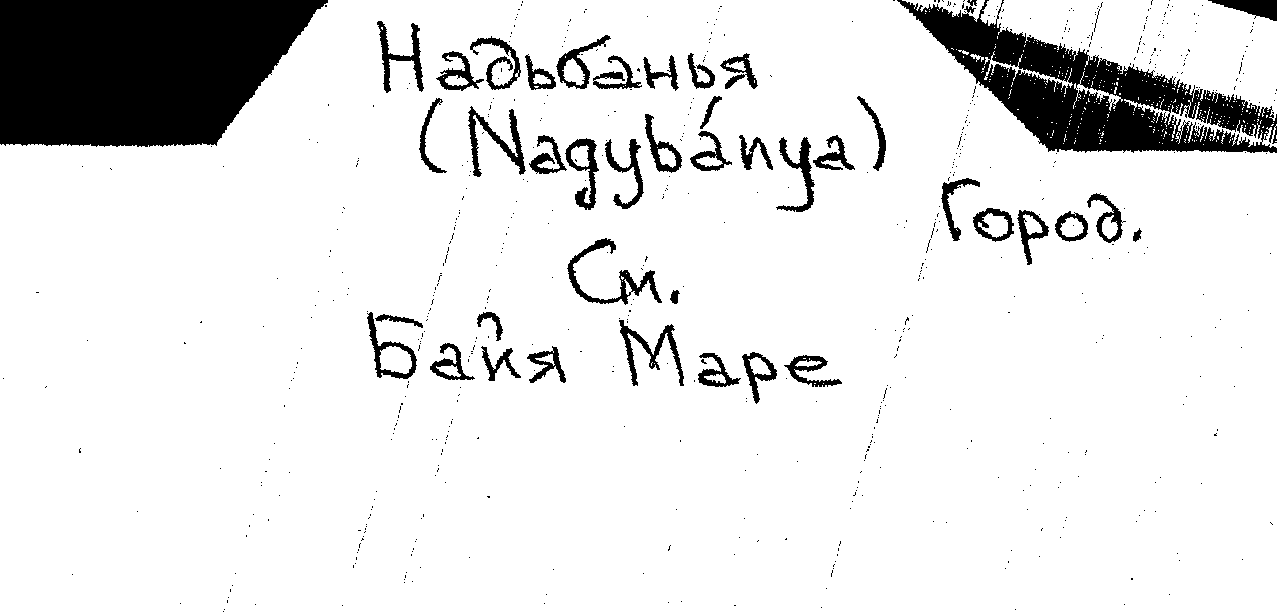 Надьбанья
(Nagybánya)
Город.
См.
Байя Маре